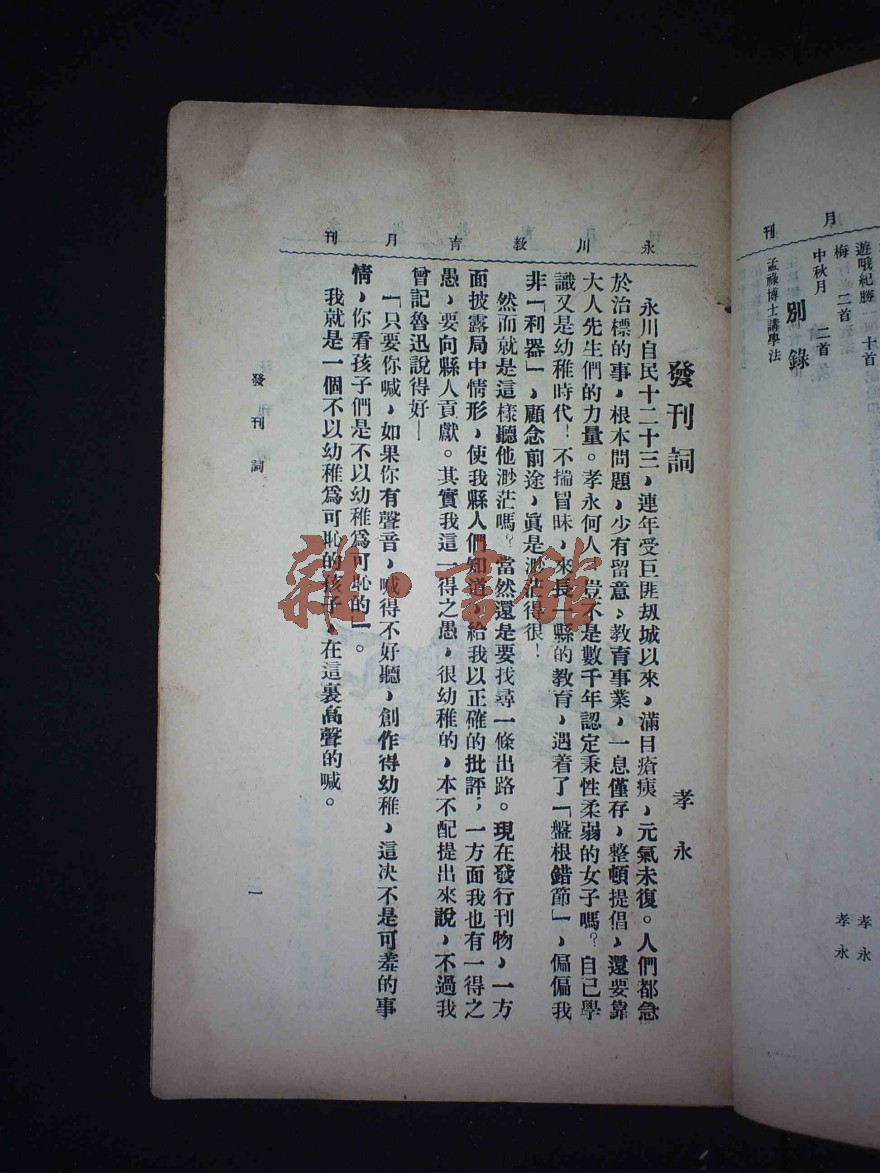 月刊
遊哦紀勝 十首
梅 二首
孝永
中秋月 二首
孝永
別錄
孟祿博士講學法
永川教育月刊
發刊詞
孝永
永川自民十二十三，連年受巨匪刼城以來，滿目瘡痍，元氣未復。人們都急
於治標的事，根本問題，少有留意，教育事業，一息僅存，整頓提倡，還要靠
大人先生們的力量。孝永何人，豈不是數千年認定秉性柔弱的女子嗎？自己學
識又是幼稚時代！不揣冒昧，來長一縣的教育，遇着了「盤根錯節」，偏偏我
非「利器」，顧念前途，眞是渺茫得很！
然而就是這樣聽他渺茫嗎？當然還是要找尋一條出路。現在發行刊物，一方
面披露局中情形，使我縣人們知道，給我以正確的批評，一方面我也有一得之
愚，要向縣人貢獻。其實我這一得之愚，很幼稚的，本不配提出來說，不過我
曾記魯迅說得好—
「只要你喊，如果你有聲音，喊得不好聽，創作得幼稚，這决不是可羞的事
情，你看孩子們是不以幼稚爲可恥的」。
我就是一個不以幼稚爲可恥的孩子，在這裏高聲的喊。
發刊詞
一
雜·書館